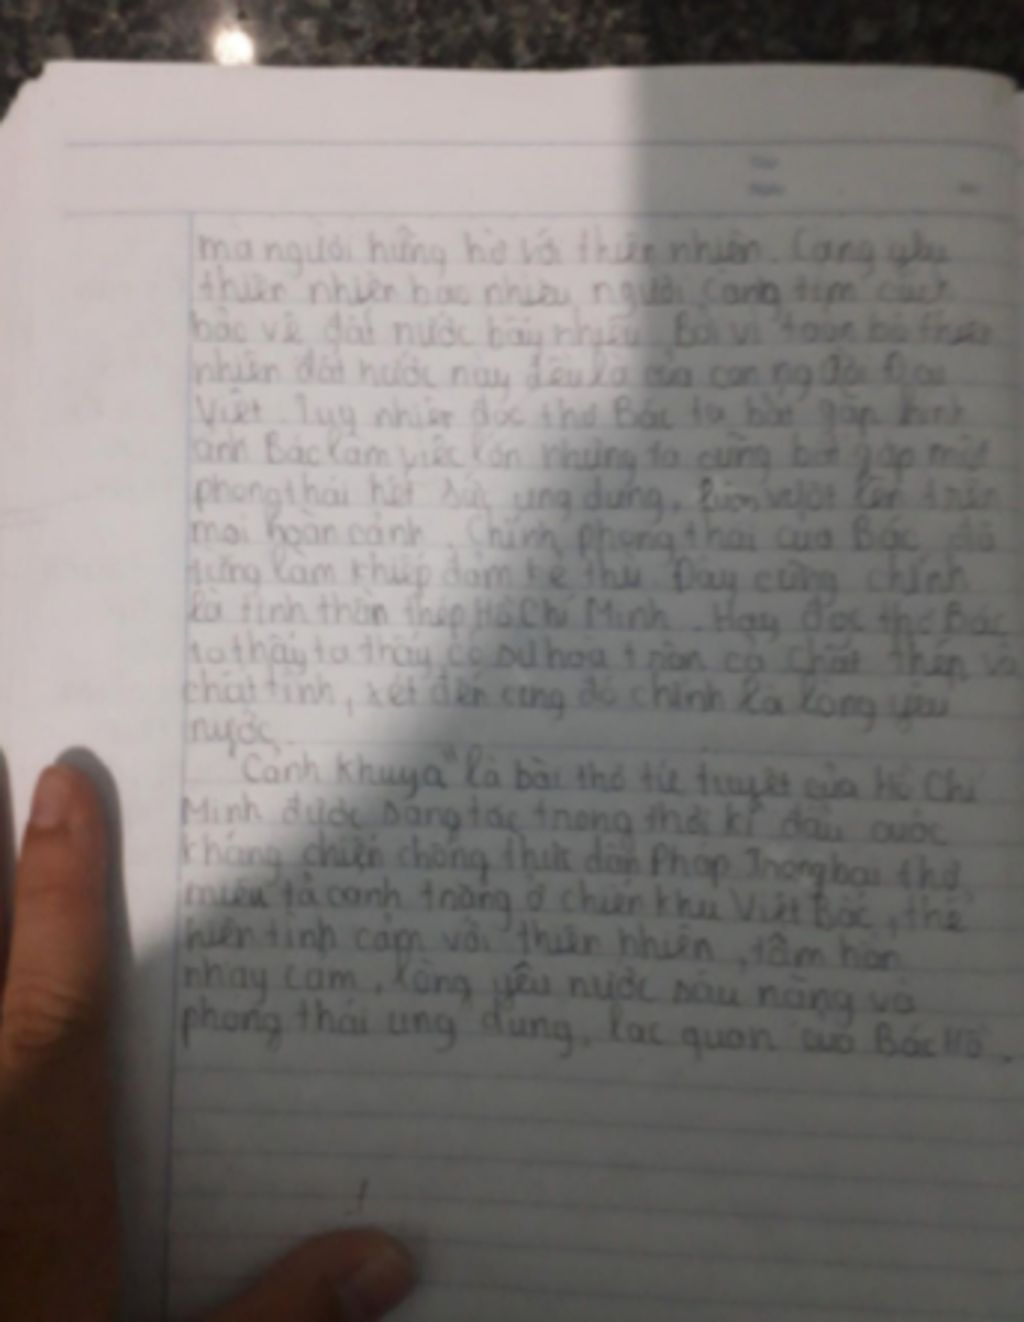 mà người hững hờ với thiên nhiên. Càng yêu
thiên nhiên bao nhiêu, người càng tìm cách
bảo vệ đất nước bấy nhiêu. Bởi vì toàn bộ thiên
nhiên đất nước này đều là của con người Đại
Việt. Tuy nhiên đọc thơ Bác ta bắt gặp hình
ảnh Bác làm việc lớn nhưng ta cũng bắt gặp một
phong thái hết sức ung dung, luôn vượt lên trên
mọi hoàn cảnh. Chính phong thái của Bác đã
từng làm khiếp đảm kẻ thù. Đây cũng chính
là tinh thần thép Hồ Chí Minh. Hay đọc thơ Bác
ta thấy ta thấy có sự hòa trộn cả chất thép và
chất tình, xét đến cùng đó chính là lòng yêu
nước.
"Cảnh khuya" là bài thơ tứ tuyệt của Hồ Chí
Minh được sáng tác trong thời kì đầu cuộc
kháng chiến chống thực dân Pháp. Trong bài thơ
miêu tả cảnh trăng ở chiến khu Việt Bắc, thể
hiện tình cảm với thiên nhiên, tâm hồn
nhạy cảm, lòng yêu nước sâu nặng và
phong thái ung dung, lạc quan của Bác Hồ.